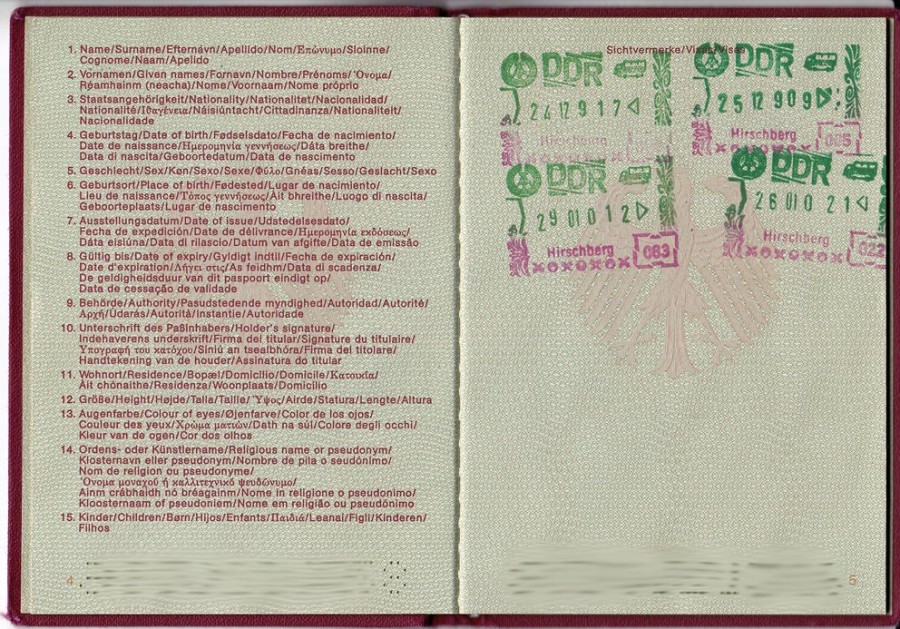 1. Name/Surname/Efternavn/Apellido/Nom/Επώνυμο/Sloinne/
Cognome/Naam/Apelido
2. Vornamen/Given names/Fornavn/Nombre/Prénoms/Όνομα/
Réamhainm (neacha)/Nome/Voornaam/Nome próprio
3. Staatsangehörigkeit/Nationality/Nationalitet/Nacionalidad/
Nationalité/Ιθαγένεια/Náisiúntacht/Cittadinanza/Nationaliteit/
Nacionalidade
4. Geburtstag/Date of birth/Fødselsdato/Fecha de nacimiento/
Date de naissance/Ημερομηνία γεννήσεως/Dáta breithe/
Data di nascita/Geboortedatum/Data de nascimento
5. Geschlecht/Sex/Køn/Sexo/Sexe/Φύλο/Gnéas/Sesso/Geslacht/Sexo
6. Geburtsort/Place of birth/Fødested/Lugar de nacimiento/
Lieu de naissance/Τόπος γεννήσεως/Áit bhreithe/Luogo di nascita/
Geboorteplaats/Lugar de nascimento
7. Ausstellungsdatum/Date of issue/Udstedelsesdato/
Fecha de expedición/Date de délivrance/Ημερομηνία εκδόσεως/
Dáta eisiúna/Data di rilascio/Datum van afgifte/Data de emissão
8. Gültig bis/Date of expiry/Gyldigt indtil/Fecha de expiración/
Date d'expiration/Λήγει στις/As feidhm/Data di scadenza/
De geldigheidsduur van dit paspoort eindigt op/
Data de cessação de validade
9. Behörde/Authority/Pasudstedende myndighed/Autoridad/Autorité/
Αρχή/Údarás/Autorità/Instantie/Autoridade
10. Unterschrift des Paßinhabers/Holder's signature/
Indehaverens underskrift/Firma del titular/Signature du titulaire/
Υπογραφή του κατόχου/Siniú an tsealbhóra/Firma del titolare/
Handtekening van de houder/Assinatura do titular
11. Wohnort/Residence/Bopæl/Domicilio/Domicile/Κατοικία/
Áit chónaithe/Residenza/Woonplaats/Domicílio
12. Größe/Height/Højde/Talla/Taille/Ύψος/Airde/Statura/Lengte/Altura
13. Augenfarbe/Colour of eyes/Øjenfarve/Color de los ojos/
Couleur des yeux/Χρώμα ματιών/Dath na súl/Colore degli occhi/
Kleur van de ogen/Cor dos olhos
14. Ordens- oder Künstlername/Religious name or pseudonym/
Klosternavn eller pseudonym/Nombre de pila o seudónimo/
Nom de religion ou pseudonyme/
Όνομα μοναχού ή καλλιτεχνικό ψευδώνυμο/
Ainm crábhaidh nó bréagainm/Nome in religione o pseudonimo/
Kloosternaam of pseudoniem/Nome em religião ou pseudónimo
15. Kinder/Children/Børn/Hijos/Enfants/Παιδιά/Leanaí/Figli/Kinderen/
Filhos
4
Sichtvermerke/Visas/Visas
DDR
24 12 9 17
Hirschberg
DDR
25 12 90 9
Hirschberg 085
DDR
29 01 0 12
Hirschberg 083
DDR
26 01 0 21
Hirschberg 022
5